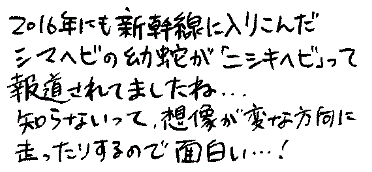 2016年にも新幹線に入りこんだ
シマヘビの幼蛇が「ニシキヘビ」って
報道されてましたね…
知らないって、想像が変な方向に
走ったりするので面白い…!